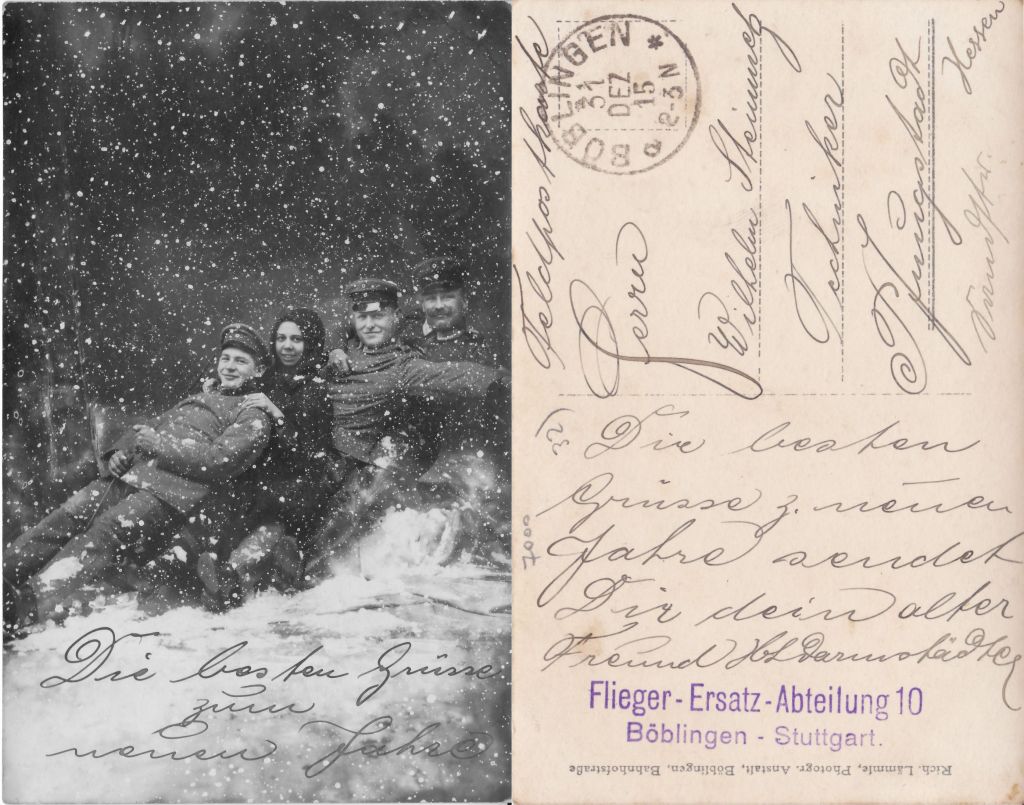 Die besten Grüsse
zum
neuen Jahre
Feldpostkarte
BÖBLINGEN
31
DEZ
15
2-3N
Herrn
Wilhelm Steinweg
Techniker
Pfungstadt
Hessen
Die besten
Grüsse z. neuen
Jahre sendet
Dir dein alter
Freund Darmstädter
Flieger-Ersatz-Abteilung 10
Böblingen - Stuttgart.
Rich. Lämmle, Photogr. Anstalt, Böblingen, Bahnhofstraße